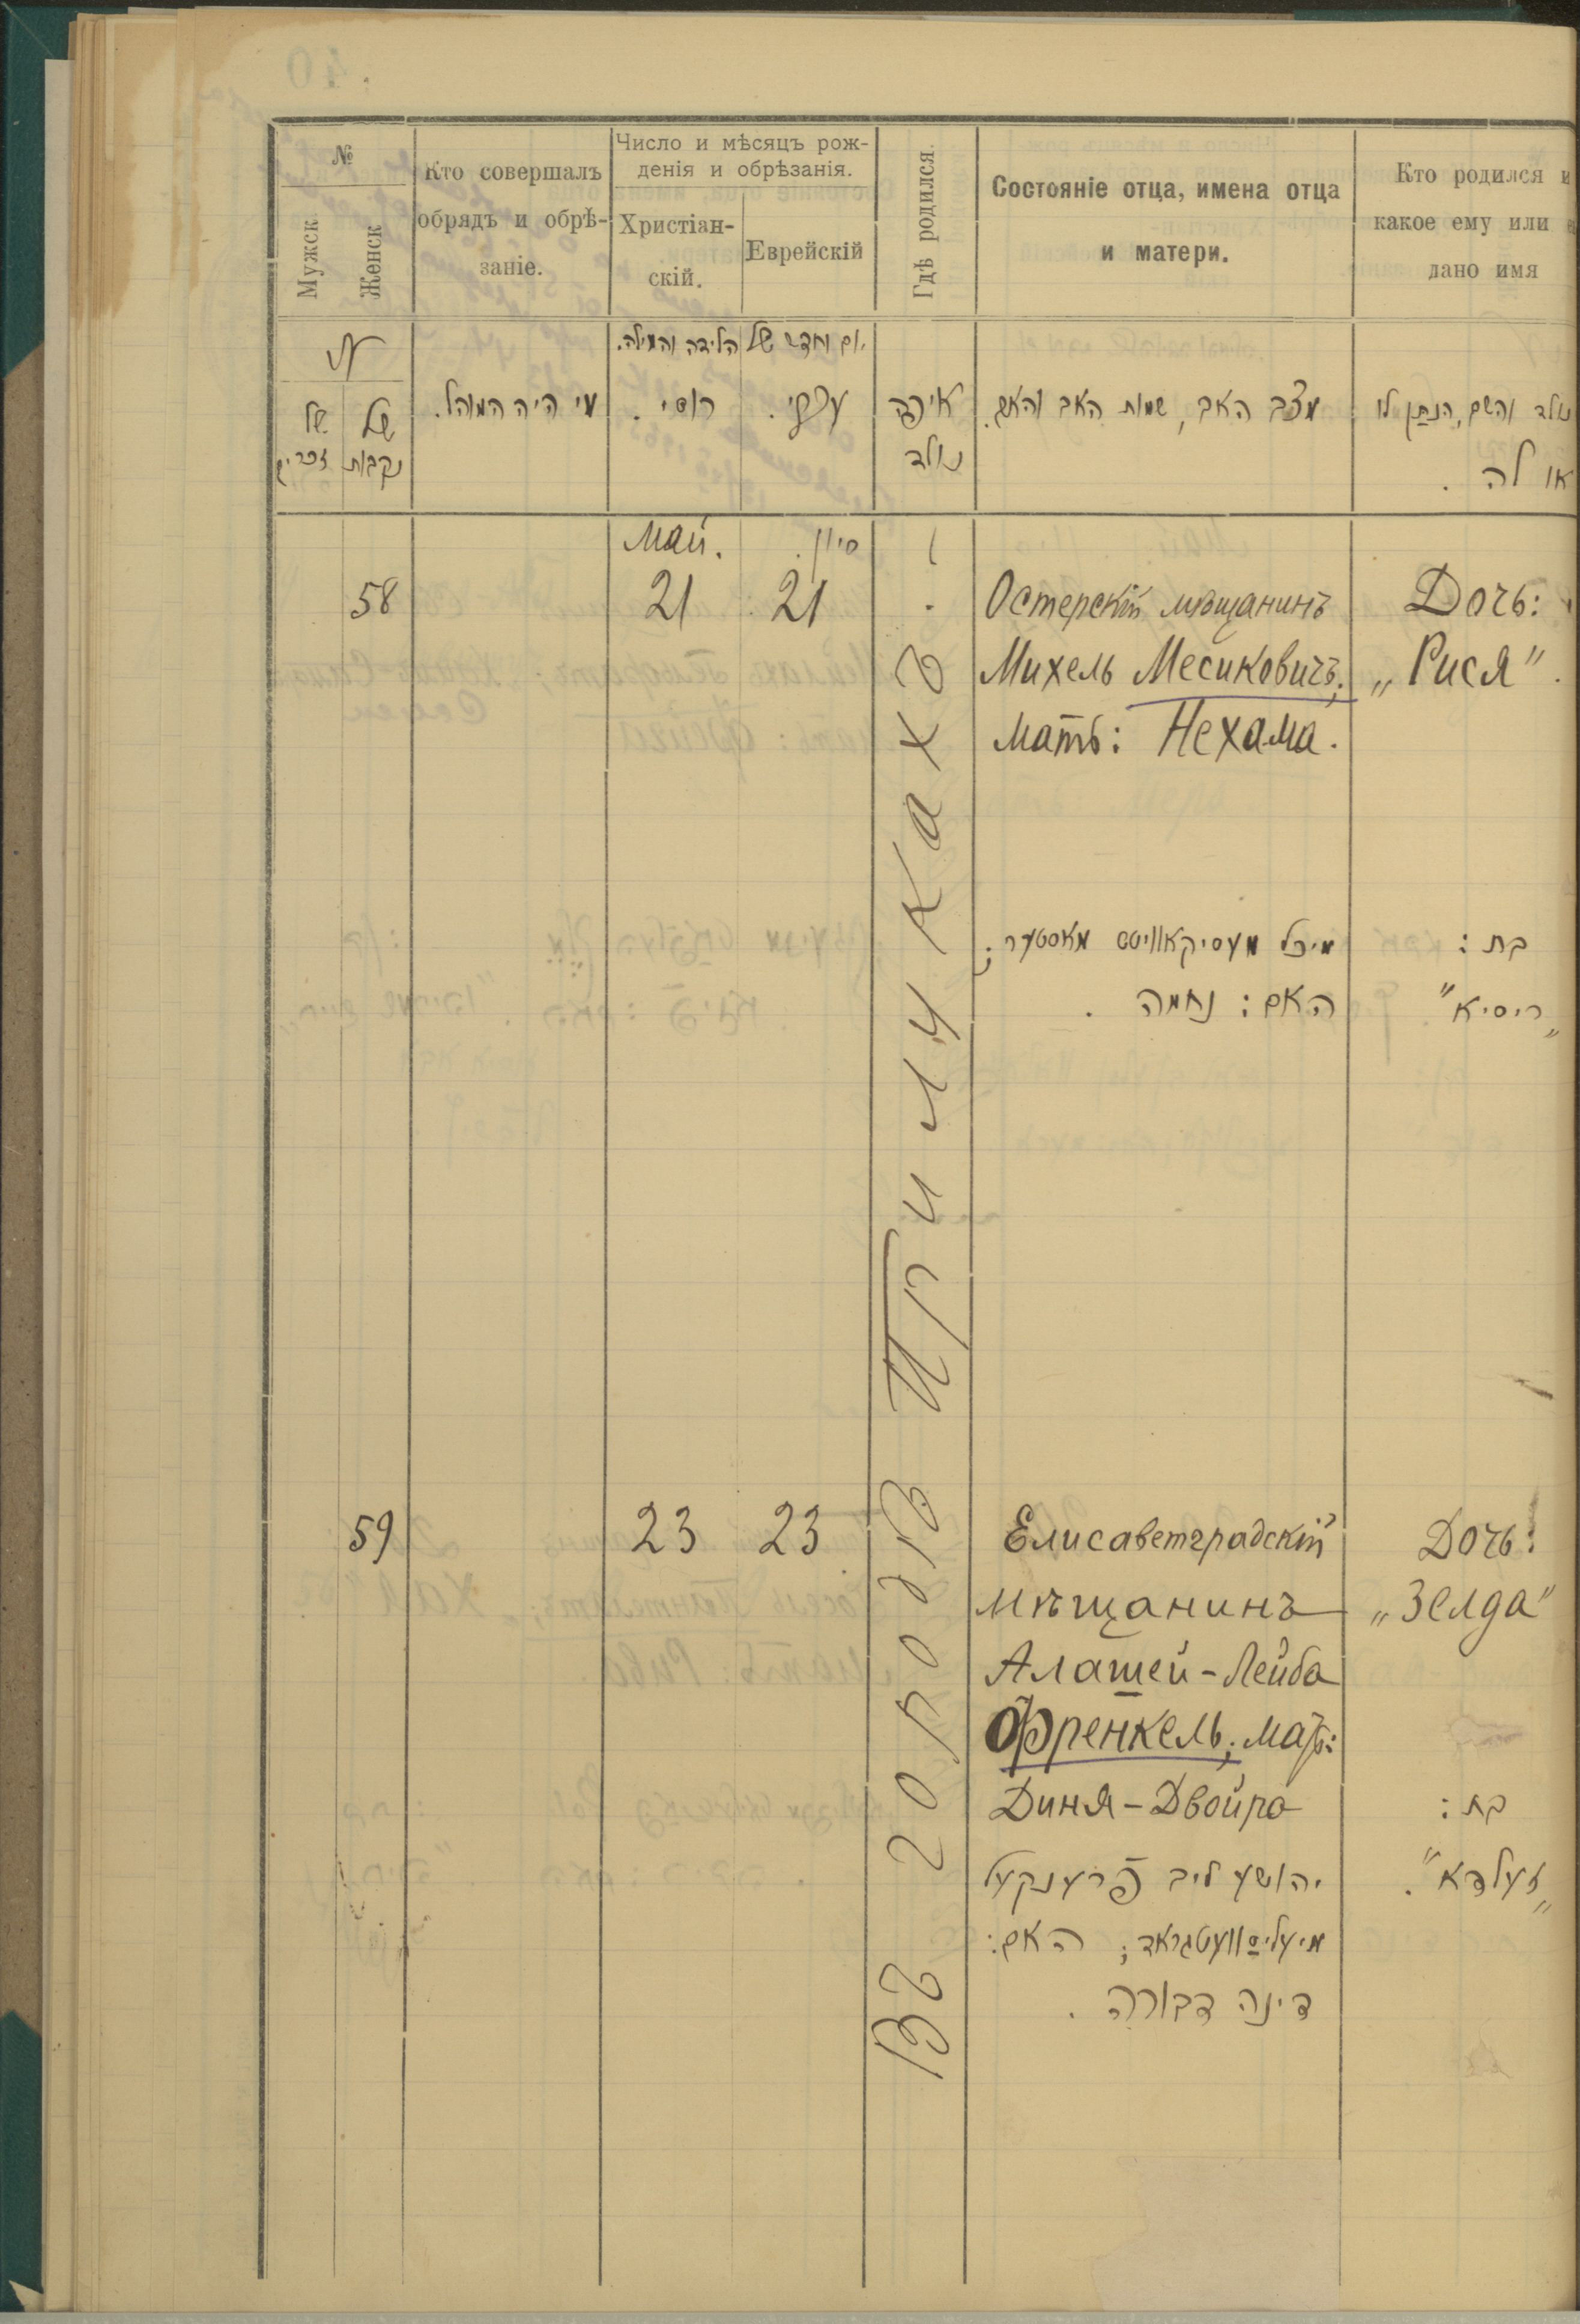 №
Мужск
Женск
Кто совершалъ
обрядъ и обрѣ-
заніе.
Число и мѣсяцъ рож-
денія и обрѣзанія.
Христіан-
скій.
Еврейскій
Гдѣ родился.
Состояніе отца, имена отца
и матери.
Кто родился и
какое ему или
дано имя
של
זכרים
של
נקבות
מי היה המוהל.
יום וחדש של הלידה והמילה.
רוסי.
עברי.
איפה
נולד
מצב האב, שמות האב והאם.
נולד והשם הנתן לו
או לה.
Май.
סיון.
58
21
21
Остерскій мѣщанинъ
Михель Месиковичъ;
мать: Нехама.
Дочь:
„Рися".
מיכל מעסיקאוויטש מאסטער;
האם: נחמה.
בת:
„ריסיא"
Въ городѣ Прилукахъ
59
23
23
Елисаветградскій
мѣщанинъ
Алашей-Лейба
Френкель; мать:
Диня-Двойра
Дочь:
„Зелда"
יהושע ליב פרענקעל
מיעליסוועטגראד; האם:
דינה דבורה.
בת:
„זעלדא".